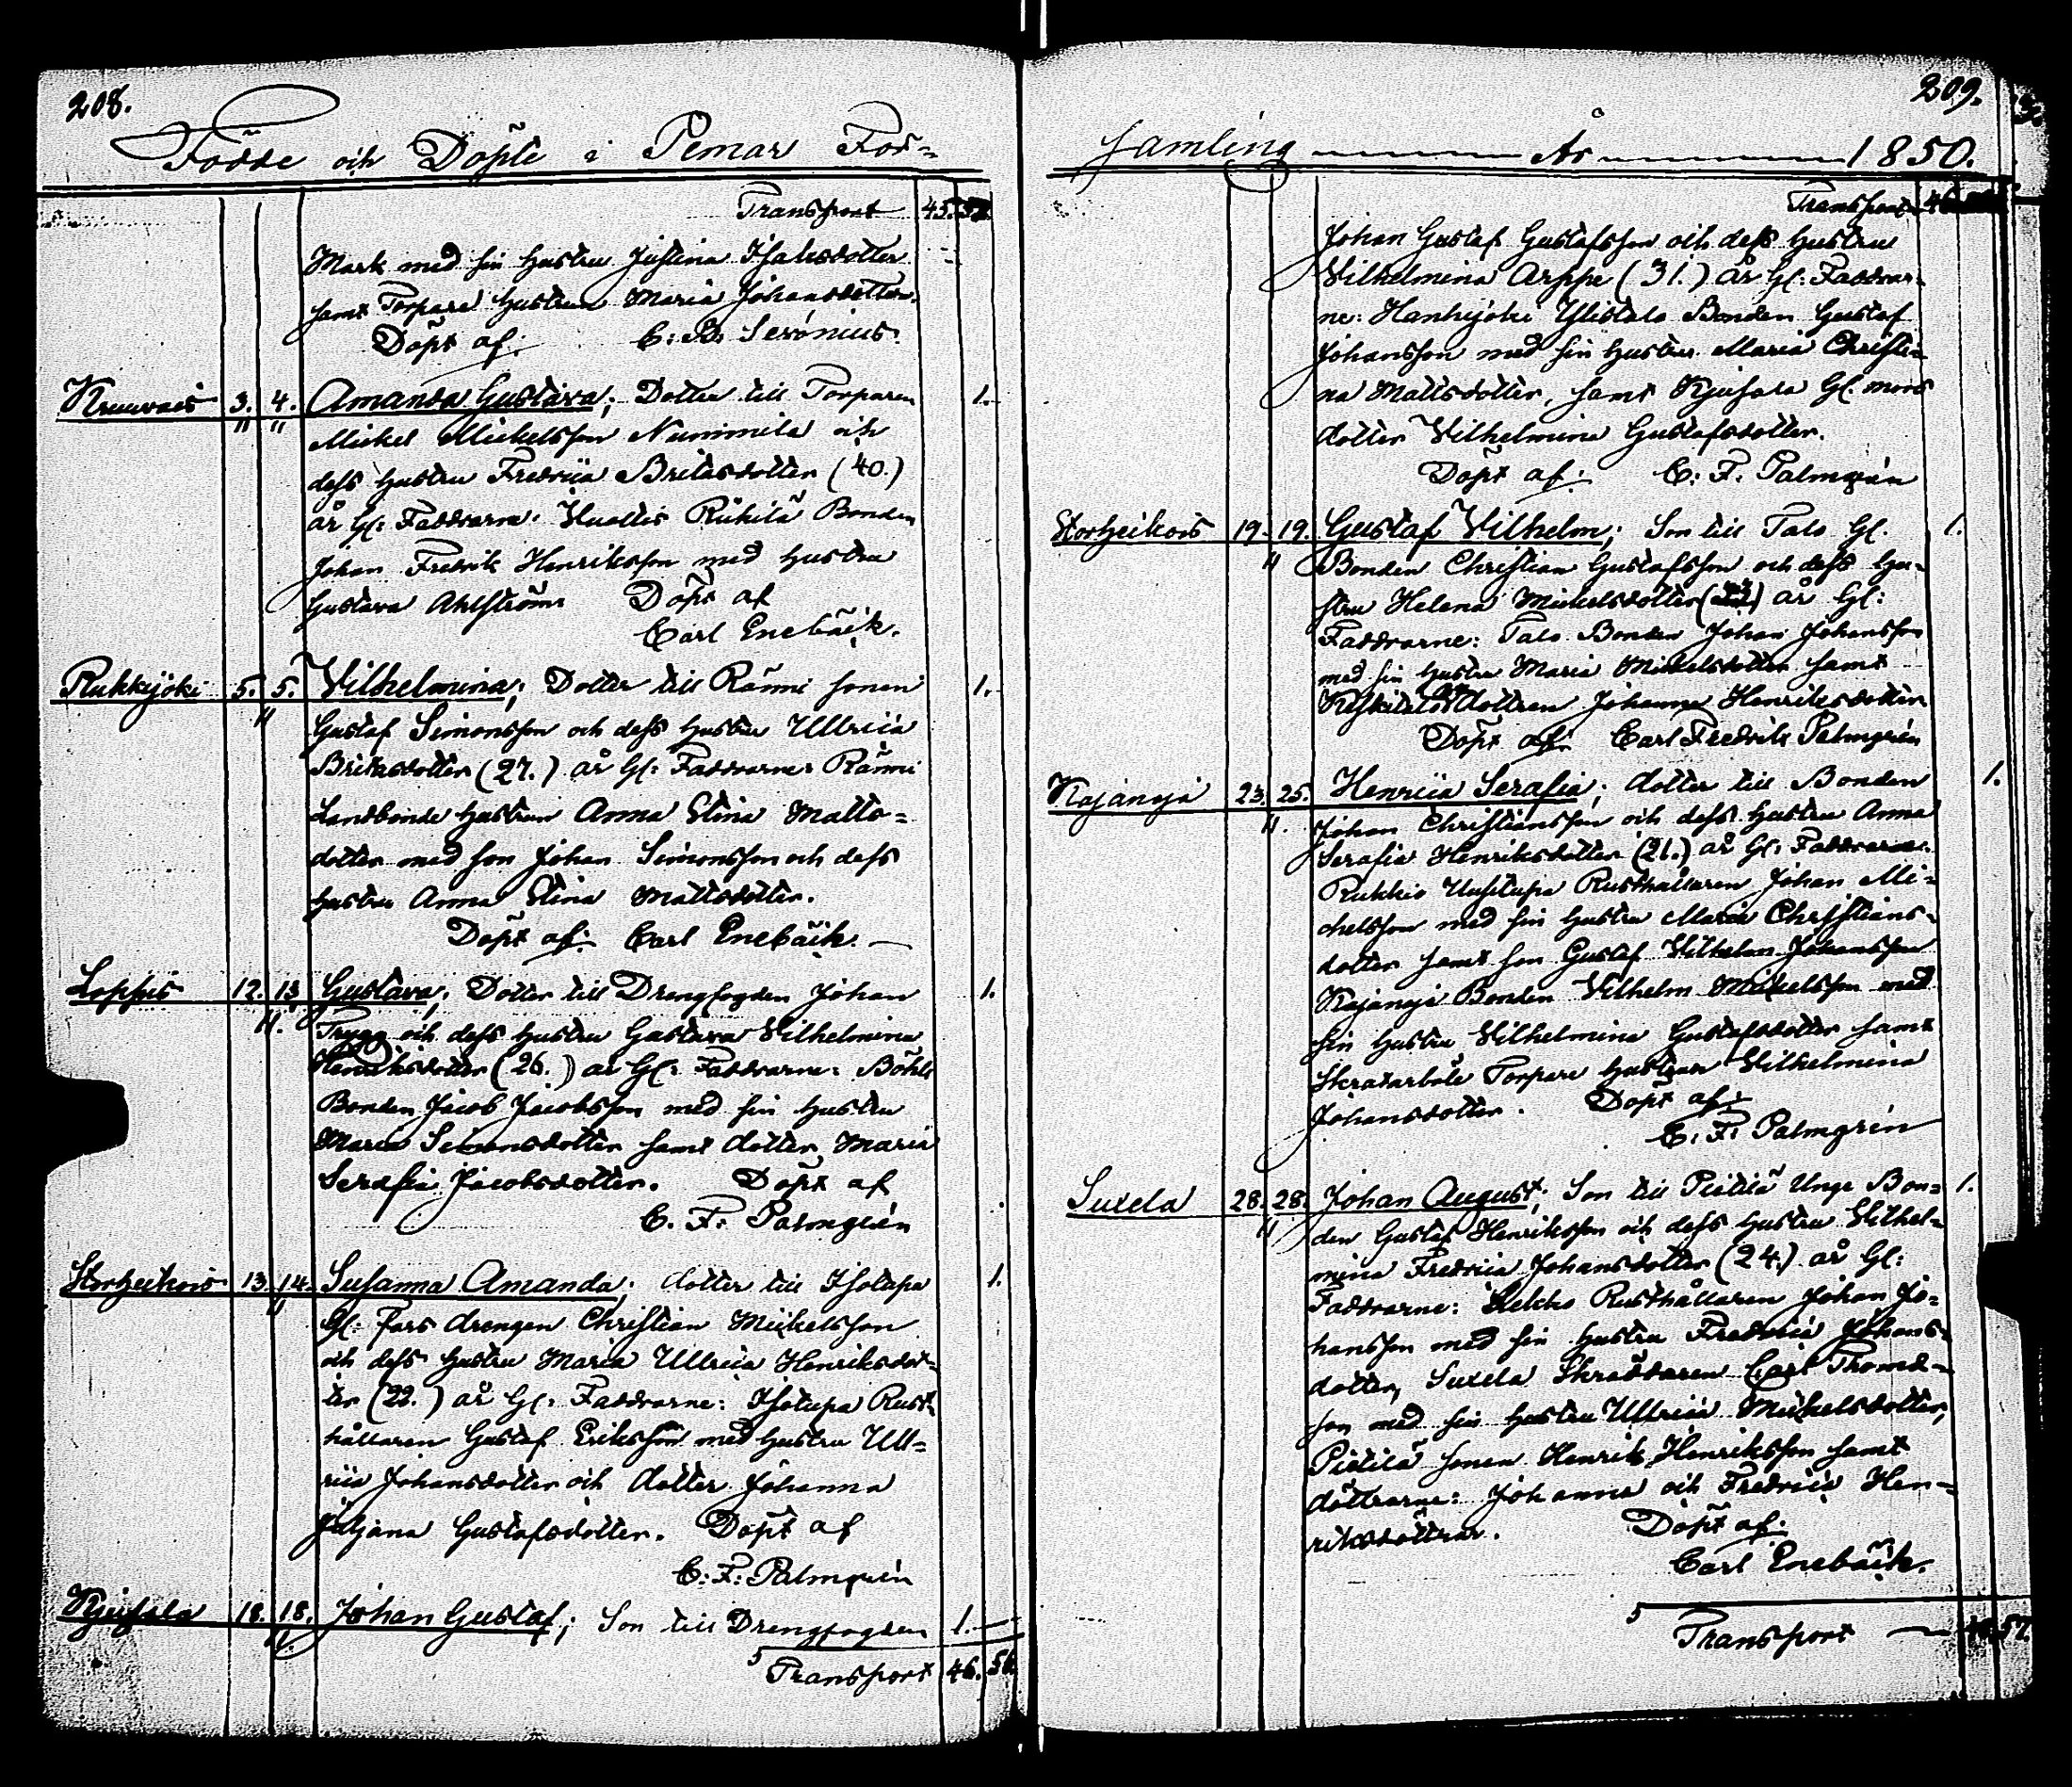 208.
Födde och Döpte i Pemar För=
Transport 45.
Mark med sin hustru Justina Isaksdotter
samt Torpare hustrun Maria Johansdotter.
Döpt af: C: B: Serónius.
3. 4. Amanda Gustava; Dotter till Torparen 1.
" " Mickel Mickelsson Nummila och
dess hustru Fredrica Britasdotter (40.)
år Gl: Faddrarne: Bonden
Johan Fredrik Henriksson med hustru
Gustava Ahlström Döpt af
Carl Enebäck.
Rukkijoki 5. 5. Vilhelmina; Dotter till Rämi sonen 1.
" Gustaf Simonsson och dess hustru Ullrica
Eriksdotter (27.) år Gl: Faddrarne: Rämi
Landbonde hustrun Anna Stina Matts=
dotter med son Johan Simonsson och dess
hustru Anna Stina Mattsdotter.
Döpt af: Carl Enebäck. —
Loppis 12. 13. Gustava; Dotter till Drengfogden Johan 1.
". Trygg och dess hustru Gustava Vilhelmina
Henriksdotter (26.) år Gl: Faddrarne: Böhle
Bonden Jacob Jacobsson med sin hustru
Maria Simonsdotter samt dotter Maria
Serafia Jacobsdotter. Döpt af
C. F: Palmgrén
Storheikois 13. 14. Susanna Amanda; dotter till Isotupa 1.
" Gl: fars drengen Christian Mickelsson
och dess hustru Maria Ullrica Henriksdot=
ter (22.) år Gl: Faddrarne: Isotupa Rust=
hållaren Gustaf Eriksson med hustru Ull=
rica Johansdotter och dotter Johanna
Juljana Gustafsdotter. Döpt af
C: F: Palmgrén
Kjusala 18. 18. Johan Gustaf; Son till Drengfogden 1.
5
Transport 46. 56.
209.
samling År 1850.
Transport 46.
Johan Gustaf Gustafsson och dess hustru
Vilhelmina Arppe (31.) år Gl: Faddrar=
ne: Hanhijoki Ylistalo Bonden Gustaf
Johansson med sin hustru Maria Christi=
na Mattsdotter, samt Kjusala Gl. mors
dotter Vilhelmina Gustafsdotter.
Döpt af: C: F: Palmgrén
Storheikois 19. 19. Gustaf Vilhelm; Son till Talo Gl. 1.
" Bonden Christian Gustafsson och dess hu=
stru Helena Mickelsdotter år Gl:
Faddrarne: Talo Bonden Johan Johansson
med sin hustru Maria Mickelsdotter samt
dottren Johanna Henriksdotter
Döpt af: Carl Fredrik Palmgrén
Kajanoja 23. 25. Henrica Serafia; dotter till Bonden 1.
". Johan Christiansson och dess hustru Anna
Serafia Henriksdotter (21.) år Gl: Faddrarne:
Rukkis Uusitupa Rusthållaren Johan Mi=
chelsson med sin hustru Maria Christians=
dotter samt son Gustaf Vilhelm Johansson
Kajanoja Bonden Vilhelm Mickelsson med
sin hustru Vilhelmina Gustafsdotter samt
Skratarböle Torpare hustrun Vilhelmina
Johansdotter. Döpt af:
C. F. Palmgrén
Suxela 28. 28. Johan August; Son till Pietilä Unge Bon= 1.
" den Gustaf Henriksson och dess hustru Vilhel=
mina Fredrica Johansdotter (24.) år Gl:
Faddrarne: Rusthållaren Johan Jo=
hansson med sin hustru Fredrica Johans=
dotter, Suxela Skräddaren Carl Thomas=
son med sin hustru Ullrica Mickelsdotter,
Pietilä sonen Henrik Henriksson samt
döttrarne: Johanna och Fredrica Hen=
riksdöttrar. Döpt af:
Carl Enebäck.
5
Transport — 57.